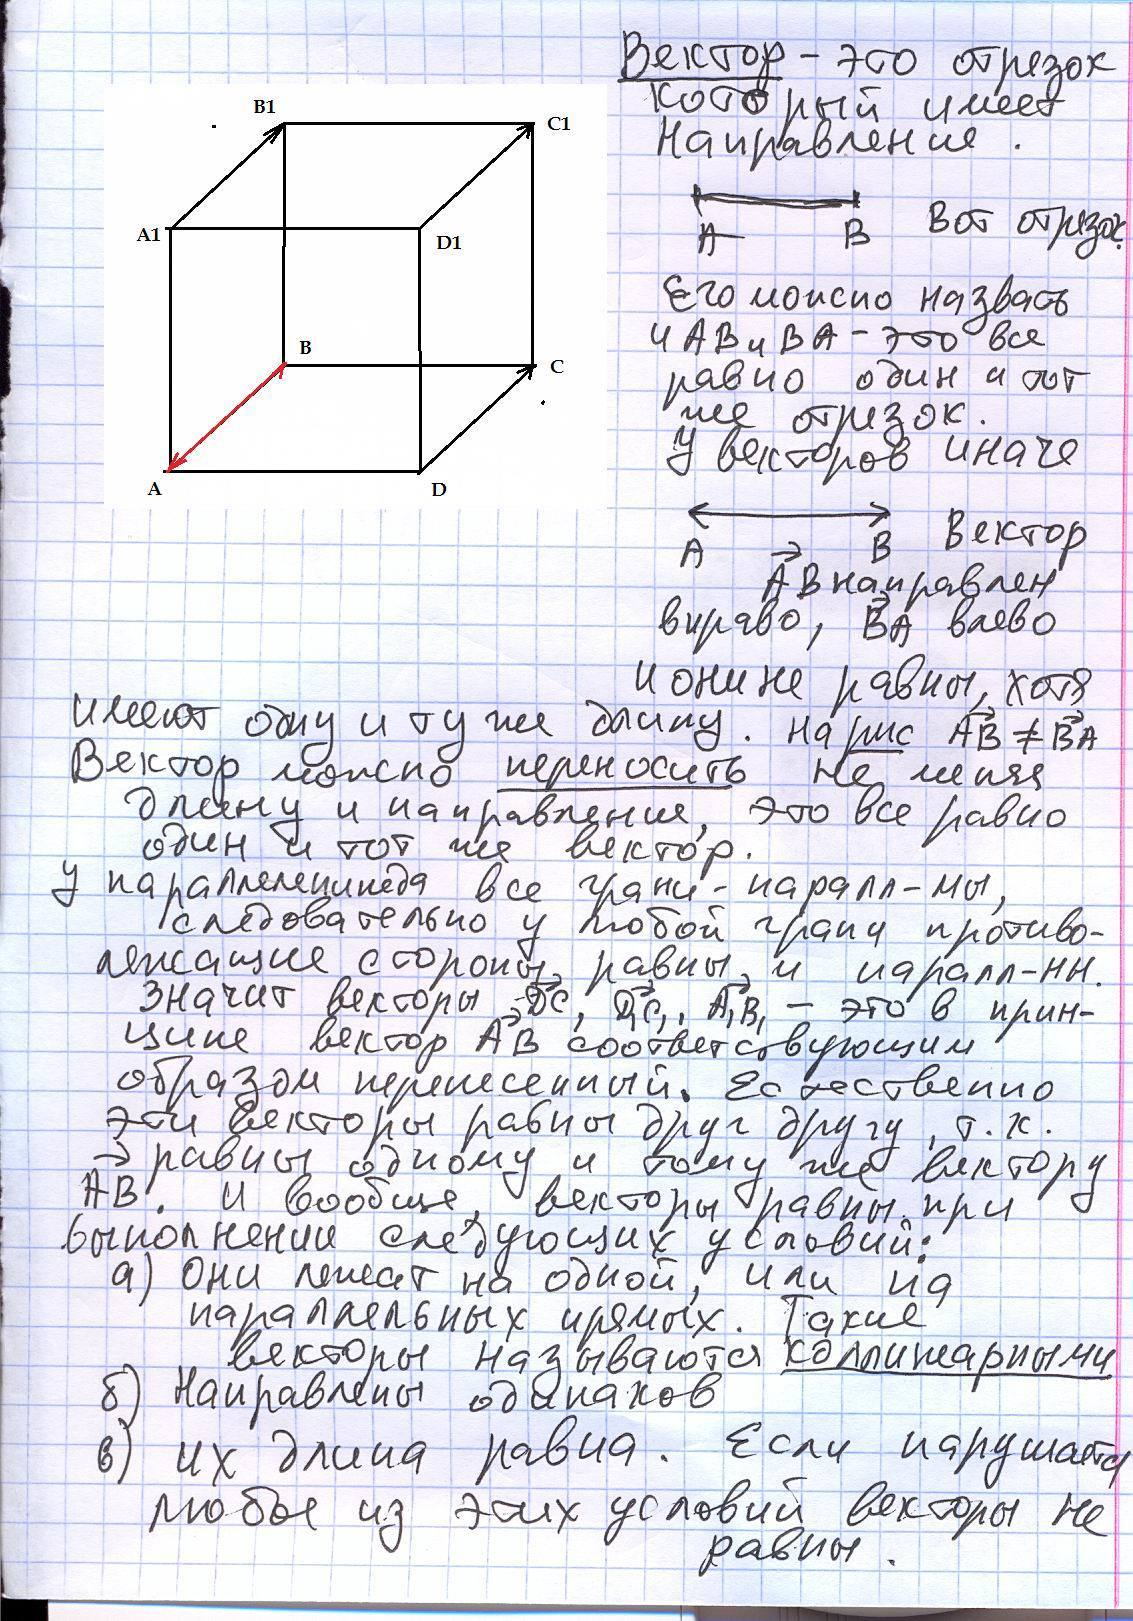 Вектор - это отрезок
который имеет
направление.
B1
C1
A1
D1
B
C
A
D
A B Вот отрезок.
Его можно назвать
и AB и BA - это все
равно один и тот
же отрезок.
У векторов иначе
A B Вектор
AB направлен
вправо, BA влево
и они не равны, хотя
имеют одну и ту же длину. На рис AB ≠ BA
Вектор можно переносить не меняя
длину и направления, это все равно
один и тот же вектор.
У параллелепипеда все грани - паралл-мы,
следовательно у любой грани противо-
лежащие стороны равны и паралл-ны.
Значит векторы DC, D₁C₁, A₁B₁ - это в прин-
ципе вектор AB соответствующим
образом перенесенный. Естественно
эти векторы равны друг другу, т.к.
равны одному и тому же вектору
AB. И вообще, векторы равны при
выполнении следующих условий:
а) Они лежат на одной, или на
параллельных прямых. Такие
векторы называются коллинеарными
б) Направлены одинаков
в) их длина равна. Если нарушается
любое из этих условий векторы не
равны.